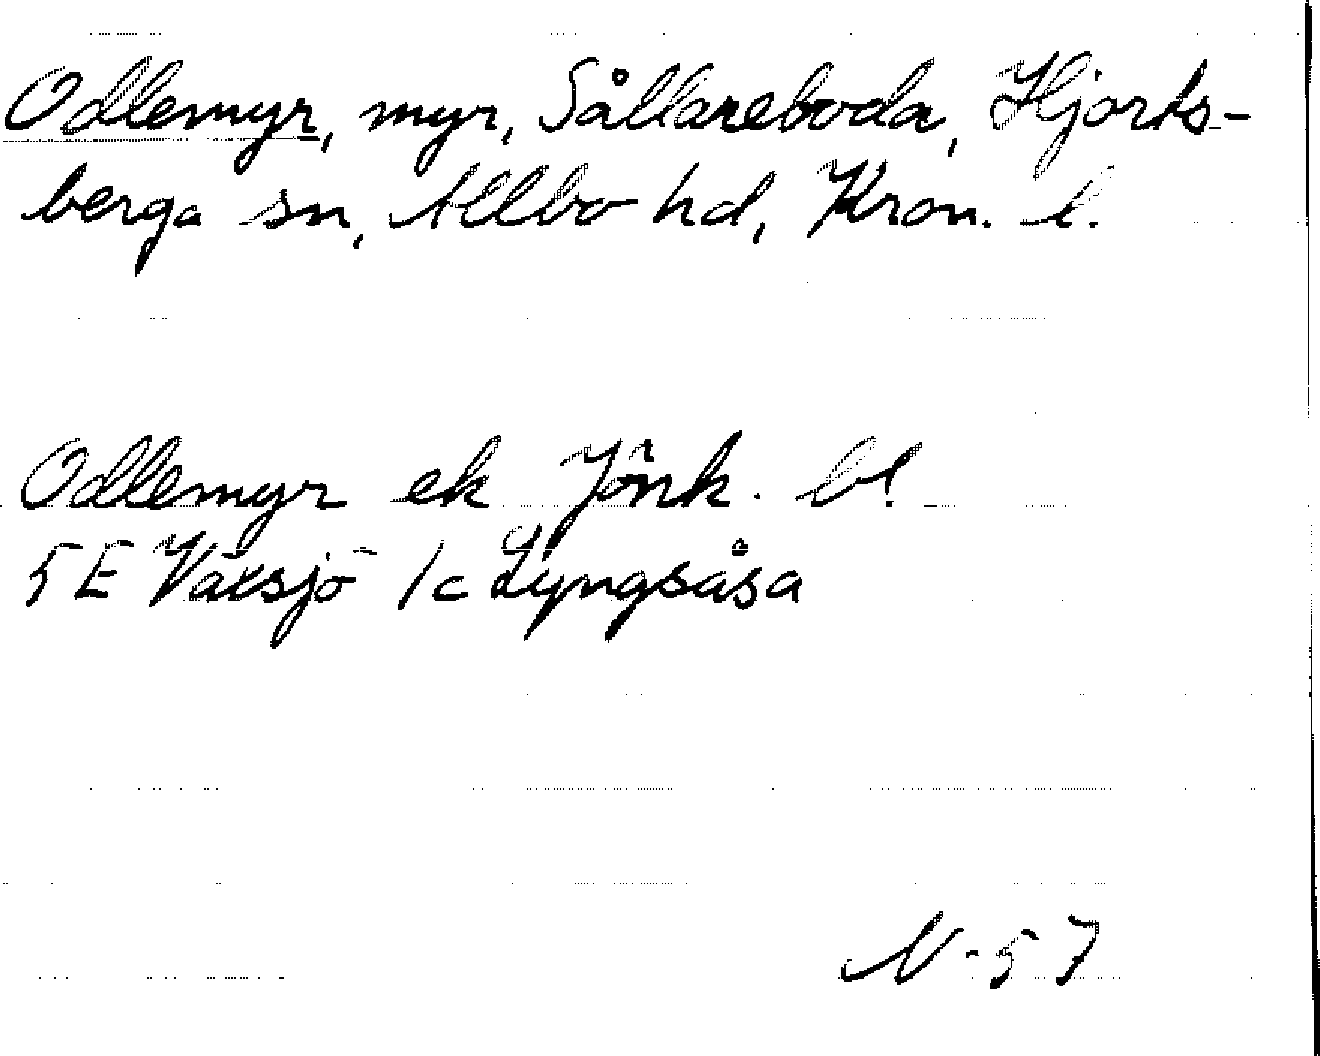 Odlemyr, myr, Sållareboda, Hjorts-
berga sn, Allbo hd, Kron. l.
Odlemyr ek Jönk. bl
5E Växsjö 1c Lyngsåsa
N-57